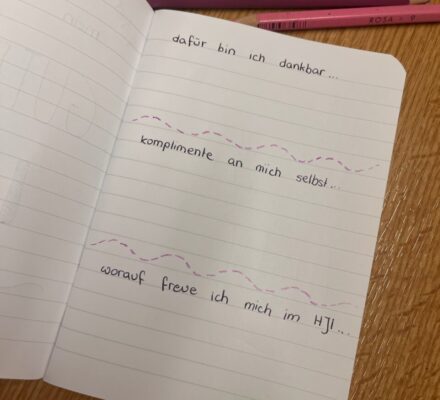 ROSA - 9
dafür bin ich dankbar...
komplimente an mich selbst...
worauf freue ich mich im HJ1...